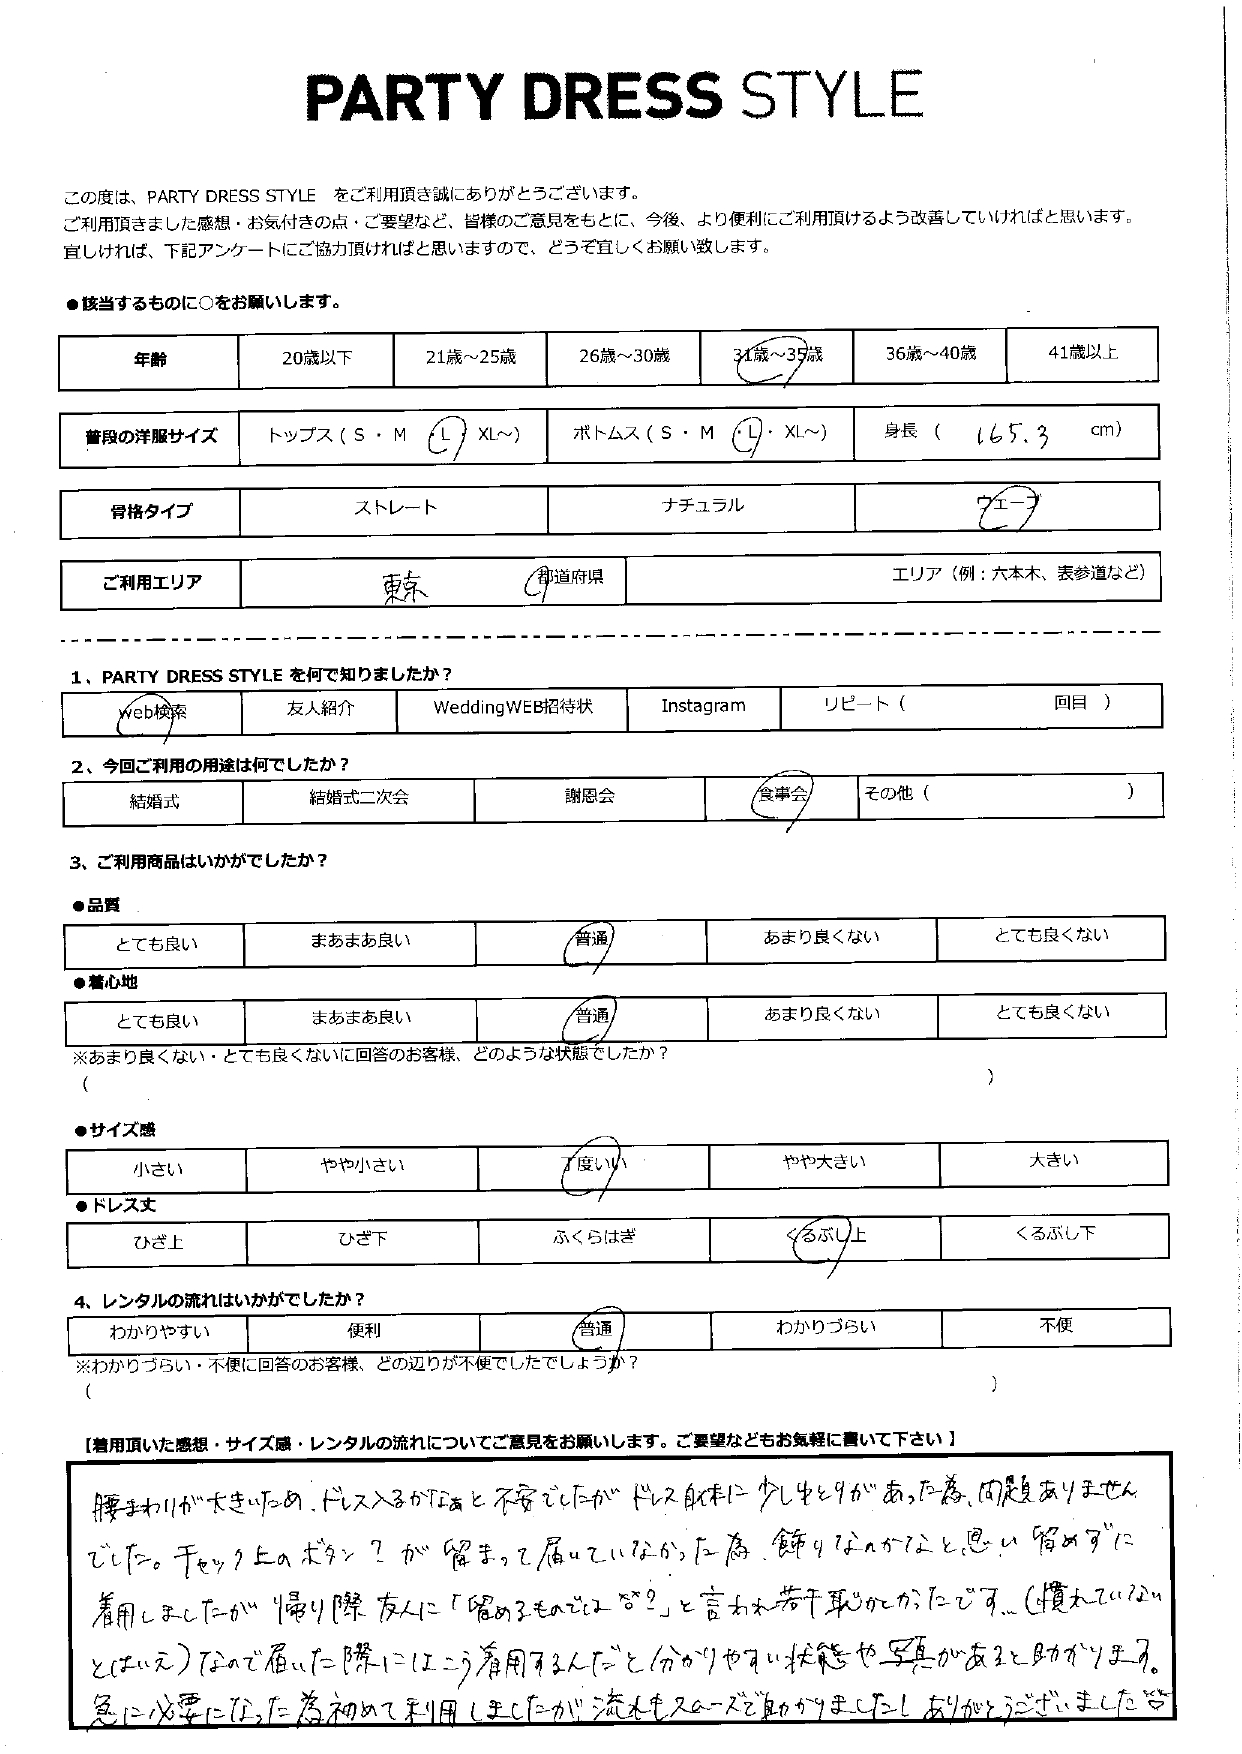 PARTY DRESS STYLE
この度は、PARTY DRESS STYLE をご利用頂き誠にありがとうございます。
ご利用頂きました感想・お気付きの点・ご要望など、皆様のご意見をもとに、今後、より便利にご利用頂けるよう改善していければと思います。
宜しければ、下記アンケートにご協力頂ければと思いますので、どうぞ宜しくお願い致します。
●該当するものに○をお願いします。
年齢 20歳以下 21歳～25歳 26歳～30歳 31歳～35歳 36歳～40歳 41歳以上
普段の洋服サイズ トップス ( S ・ M ・ L ・ XL～) ボトムス ( S ・ M ・ L ・ XL～) 身長 ( 165.3 cm)
骨格タイプ ストレート ナチュラル ウェーブ
ご利用エリア 東京 都道府県 エリア（例：六本木、表参道など）
1、PARTY DRESS STYLE を何で知りましたか？
web検索 友人紹介 WeddingWEB招待状 Instagram リピート（ 回目 ）
2、今回ご利用の用途は何でしたか？
結婚式 結婚式二次会 謝恩会 食事会 その他（ ）
3、ご利用商品はいかがでしたか？
●品質
とても良い まあまあ良い 普通 あまり良くない とても良くない
●着心地
とても良い まあまあ良い 普通 あまり良くない とても良くない
※あまり良くない・とても良くないに回答のお客様、どのような状態でしたか？
( )
●サイズ感
小さい やや小さい 丁度いい やや大きい 大きい
●ドレス丈
ひざ上 ひざ下 ふくらはぎ くるぶし上 くるぶし下
4、レンタルの流れはいかがでしたか？
わかりやすい 便利 普通 わかりづらい 不便
※わかりづらい・不便に回答のお客様、どの辺りが不便でしたでしょうか？
( )
【着用頂いた感想・サイズ感・レンタルの流れについてご意見をお願いします。ご要望などもお気軽に書いて下さい】
腰まわりが大きいため、ドレス入るかなぁと不安でしたがドレス自体に少しゆとりがあった為、問題ありません
でした。チャック上のボタン？が留まって届いていなかった為、飾りなのかなと思い留めずに
着用しましたが帰り際友人に「留めるものでは？」と言われ若干恥ずかしかったです…（慣れていない
とはいえ）なので届いた際にはこう着用するんだと分かりやすい状態や写真があると助かります。
急に必要になった為初めて利用しましたが流れもスムーズで助かりましたしありがとうございました